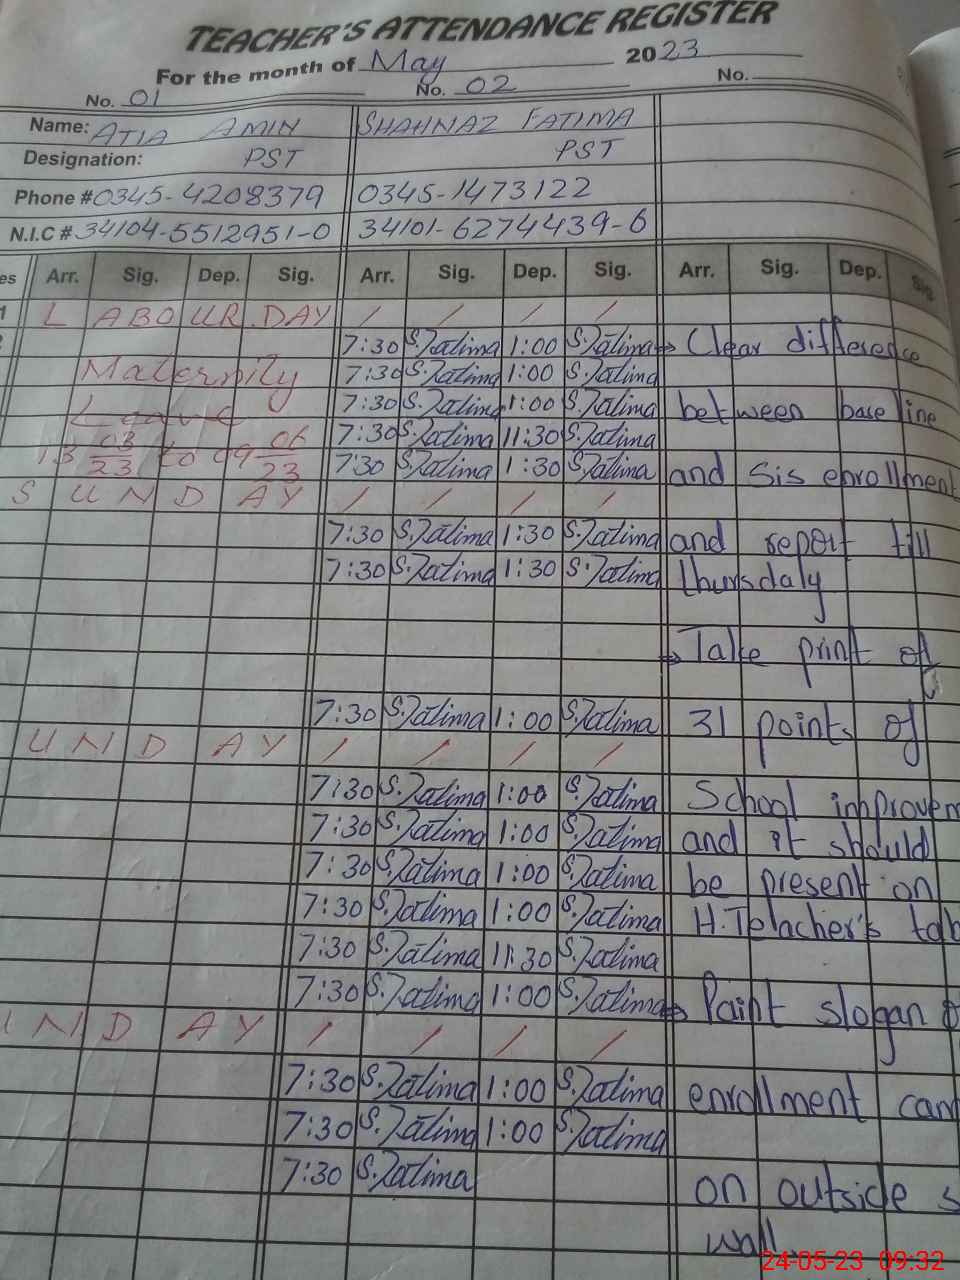 TEACHER'S ATTENDANCE REGISTER
For the month of May 2023
No. 01 No. 02 No.
Name: ATIA AMIN SHAHNAZ FATIMA
Designation: PST PST
Phone # 0345-4208379 0345-1473122
N.I.C # 34104-5512951-0 34101-6274439-6
es Arr. Sig. Dep. Sig. Arr. Sig. Dep. Sig. Arr. Sig. Dep. Sig.
1 LABOUR.DAY / / / /
7:30 S.Fatima 1:00 S.Fatima ⇒ Clear difference
Maternity 7:30 S.Fatima 1:00 S.Fatima
Leave 7:30 S.Fatima 1:00 S.Fatima between base line
13 03/23 to 09 06/23 7:30 S.Fatima 11:30 S.Fatima
7:30 S.Fatima 1:30 S.Fatima and Sis enrollment
SUNDAY / / / /
7:30 S.Fatima 1:30 S.Fatima and report till
7:30 S.Fatima 1:30 S.Fatima thursdaly
⇒ Take print of
7:30 S.Fatima 1:00 S.Fatima 31 points of
UNDAY / / / /
7:30 S.Fatima 1:00 S.Fatima School improvem
7:30 S.Fatima 1:00 S.Fatima and it should
7:30 S.Fatima 1:00 S.Fatima be present on
7:30 S.Fatima 1:00 S.Fatima H.Telacher's tab
7:30 S.Fatima 11:30 S.Fatima
7:30 S.Fatima 1:00 S.Fatima ⇒ Paint slogan o
UNDAY / / / /
7:30 S.Fatima 1:00 S.Fatima enrollment cam
7:30 S.Fatima 1:00 S.Fatima
7:30 S.Fatima on outside s
wall.
24-05-23 09:32